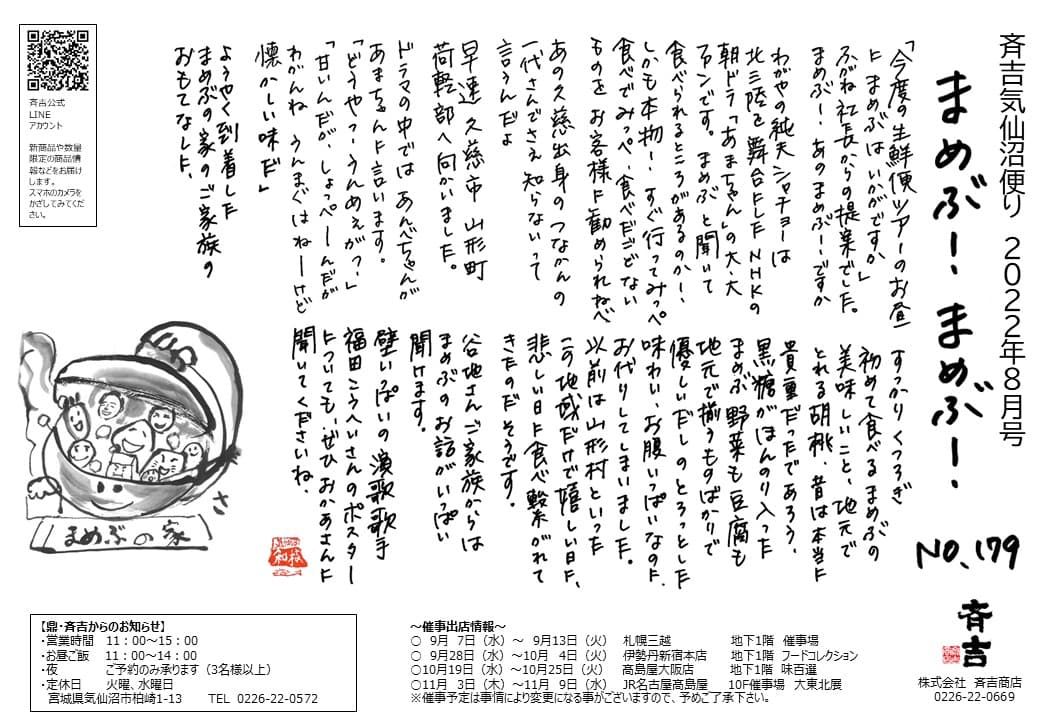 斉吉気仙沼便り 2022年8月号
まめぶー、まめぶー、
NO.179
「今度の生鮮便ツアーのお昼
に まめぶは いかがですか」
ふがね社長からの提案でした。
まめぶー！ あのまめぶーですか
わがやの純夫シャチョーは
北三陸を舞台とした NHKの
朝ドラ「あまちゃん」の大、大
ファンです。まめぶと聞いて
食べられるところがあるのかー、
しかも本物！ すぐ行ってみっぺ
食べでみっぺ、食べだごどない
ものを お客様に勧められねべ
あの久慈出身のつなかんの
一代さんでさえ知らないって
言うんだよ
早速 久慈市 山形町
荷軽部へ向かいました。
ドラマの中では あんべちゃんが
あまちゃんに言います。
「どうやっ、うんめぇがっ」
「甘いんだが、しょっぺーんだが
わがんね うんまぐはねーけど
懐かしい味だ」
ようやく到着した
まめぶの家のご家族の
おもてなしに、
すっかりくつろぎ
初めて食べるまめぶの
美味しいこと、地元で
とれる胡桃、昔は本当に
貴重だったであろう、
黒糖がほんのり入った
まめぶ 野菜も豆腐も
地元で揃うものばかりで
優しいだしのとろっとした
味わい、お腹いっぱいなのに、
お代りしてしまいました。
以前は山形村といった
この地域だけで嬉しい日に、
悲しい日に食べ繋がれて
きたのだそうです。
谷地さんご家族からは
まめぶのお話がいっぱい
聞けます。
壁いっぱいの演歌歌手
福田こうへいさんのポスター
についても、ぜひおかあさんに
聞いてくださいね、
斉吉公式
LINE
アカウント
新商品や数量
限定の商品情
報などをお届け
します。
スマホのカメラを
かざしてみてくだ
さい。
まめぶの家
さ
【鼎・斉吉からのお知らせ】
・営業時間 11：00～15：00
・お昼ご飯 11：00～14：00
・夜 ご予約のみ承ります（3名様以上）
・定休日 火曜、水曜日
宮城県気仙沼市柏崎1-13 TEL 0226-22-0572
～催事出店情報～
○ 9月 7日（水）～ 9月13日（火） 札幌三越 地下1階 催事場
○ 9月28日（水）～10月 4日（火） 伊勢丹新宿本店 地下1階 フードコレクション
○10月19日（水）～10月25日（火） 髙島屋大阪店 地下1階 味百選
○11月 3日（木）～11月 9日（水） JR名古屋髙島屋 10F催事場 大東北展
※催事予定は事情により変更になる事がございますので、予めご了承下さい。
斉吉
株式会社 斉吉商店
0226-22-0669